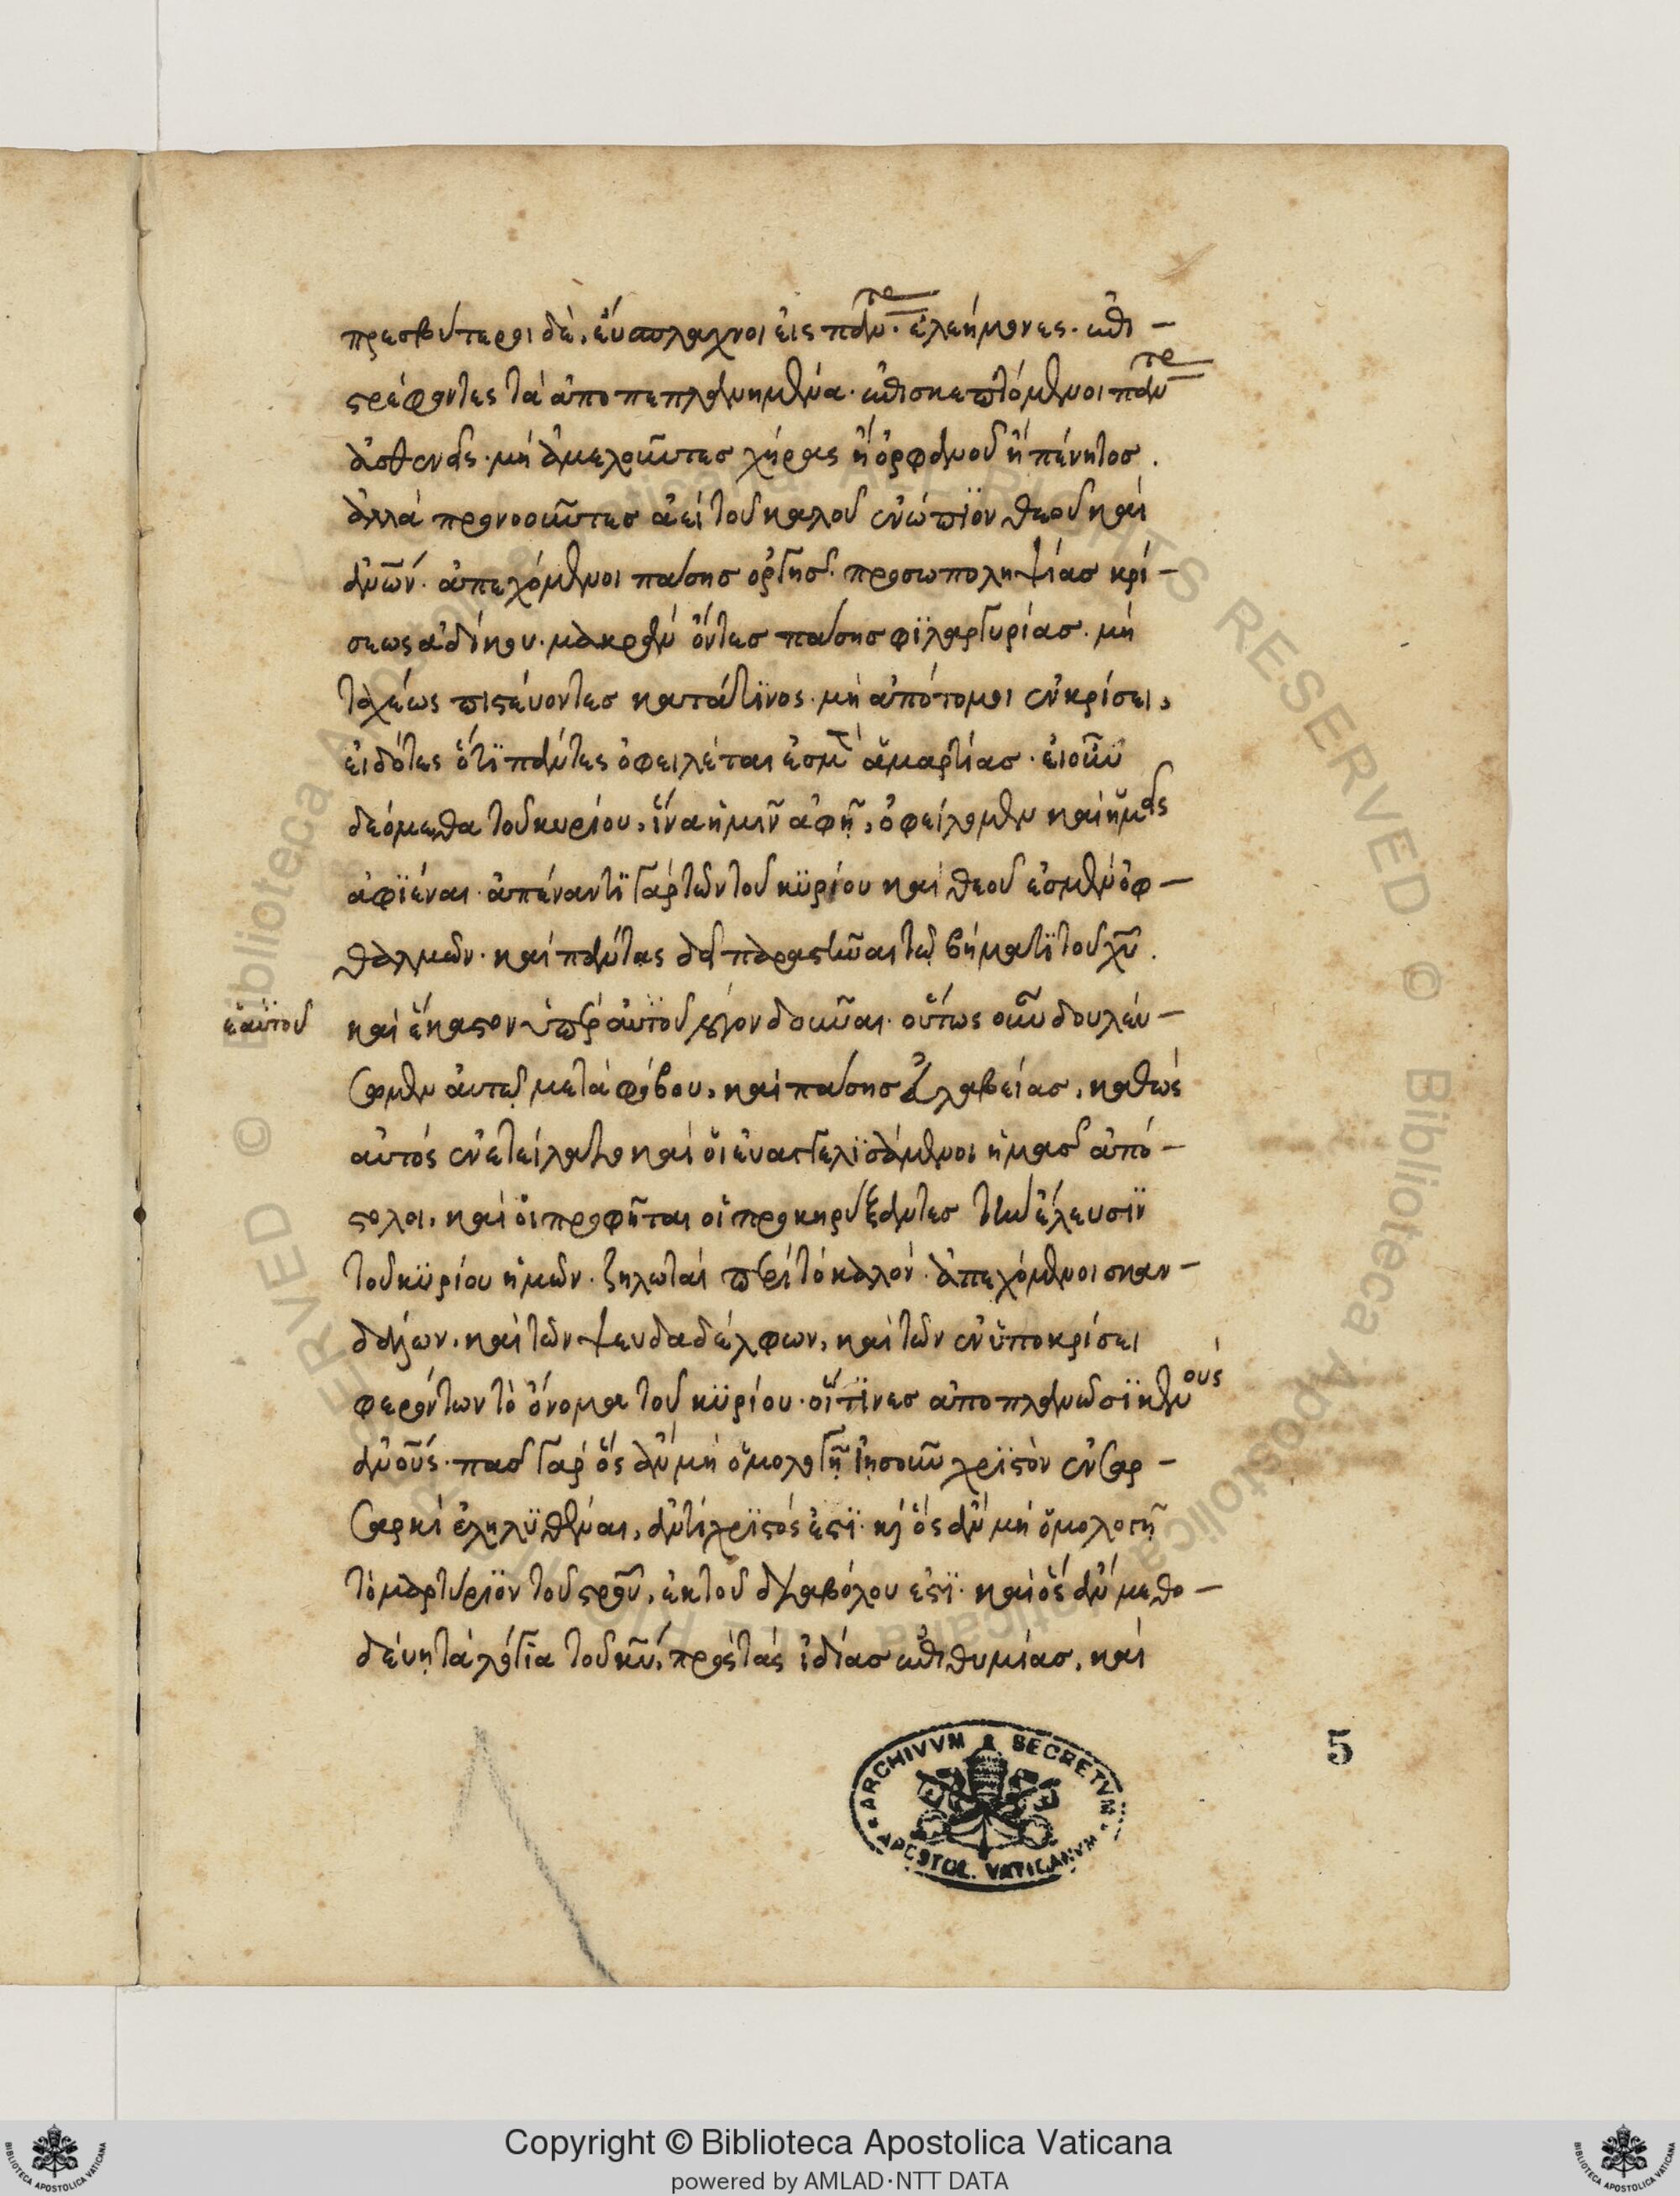 πρεσβύτεροι δὲ, εὔσπλαχνοι εἰς παν τε. ἐλεήμονες. ἐπι -
στρέφοντες τὰ ἀποπεπλανημένα. ἐπισκεπτόμενοι παν τε
ἀσθενεῖς. μὴ ἀμελοῦντες χήρας ἢ ὀρφανοῦ ἢ πένητος.
ἀλλὰ προνοοῦντες ἀεὶ τοῦ καλοῦ ἐνώπϊον θεοῦ καὶ
ἀνῶν. ἀπεχόμενοι πάσης ὀργῆς. προσωποληψίας κρί -
σεως ἀδίκου. μακρὰν ὄντες πάσης φϊλαργυρίας. μὴ
ταχέως πιστεύοντες κατά τϊνος. μὴ ἀπότομοι ἐν κρίσει,
εἰδότες ὅτϊ πάντες ὀφειλέται ἐσμὲ ἁμαρτίας. εἰ οὖν
δεόμεθα τοῦ κυρίου, ἵνα ἡμῖν ἀφῇ, ὀφείλομεν καὶ ἡμεῖς
ἀφϊέναι. ἀπέναντϊ γὰρ τῶν τοῦ κϋρίου καὶ θεοῦ ἐσμὲν ὀφ -
θαλμῶν. καὶ πάντας δεῖ παραστῆναι τῷ βήματϊ τοῦ χῦ.
ἑαϋτοῦ
καὶ ἕκαστον ὑπὲρ αὐτοῦ λόγον δοῦναι. οὕτως οὖν δουλεύ -
σομεν αὐτῷ μετὰ φόβου, καὶ πάσης εὐλαβείας, καθὼς
αὐτὸς ἐνετείλατο καὶ οἱ εὐαγγελϊσάμενοι ἡμᾶς ἀπό -
στολοι, καὶ οἱ προφῆται οἱ προκηρύξαντες τὴν ἔλευσϊν
τοῦ κϋρίου ἡμῶν. ζηλωταὶ περὶ τὸ καλόν. ἀπεχόμενοι σκαν -
δάλων, καὶ τῶν ψευδαδέλφων, καὶ τῶν ἐν ὑποκρίσει
φερόντων τὸ ὄνομα τοῦ κϋρίου. οἵτϊνες ἀποπλανῶσϊ κενοὺς
ἀνοῦς. πᾶς γὰρ ὃς ἂν μὴ ὁμολογῇ ἰησοῦν χρϊστὸν ἐν σαρ -
σαρκὶ ἐληλϋθέναι, ἀντίχρϊστός ἐστϊ. κὶ ὃς ἂν μὴ ὁμολογῇ
τὸ μαρτύρϊον τοῦ στρου, ἐκ τοῦ διαβόλου ἐστϊ. καὶ ὃς ἂν μεθο -
δεύῃ τὰ λόγϊα τοῦ κῦ, πρὸς τὰς ἰδίας ἐπιθυμίας, καὶ
ARCHIVVM SECRETVM
APOSTOL. VATICANVM
5
Copyright © Biblioteca Apostolica Vaticana
powered by AMLAD·NTT DATA